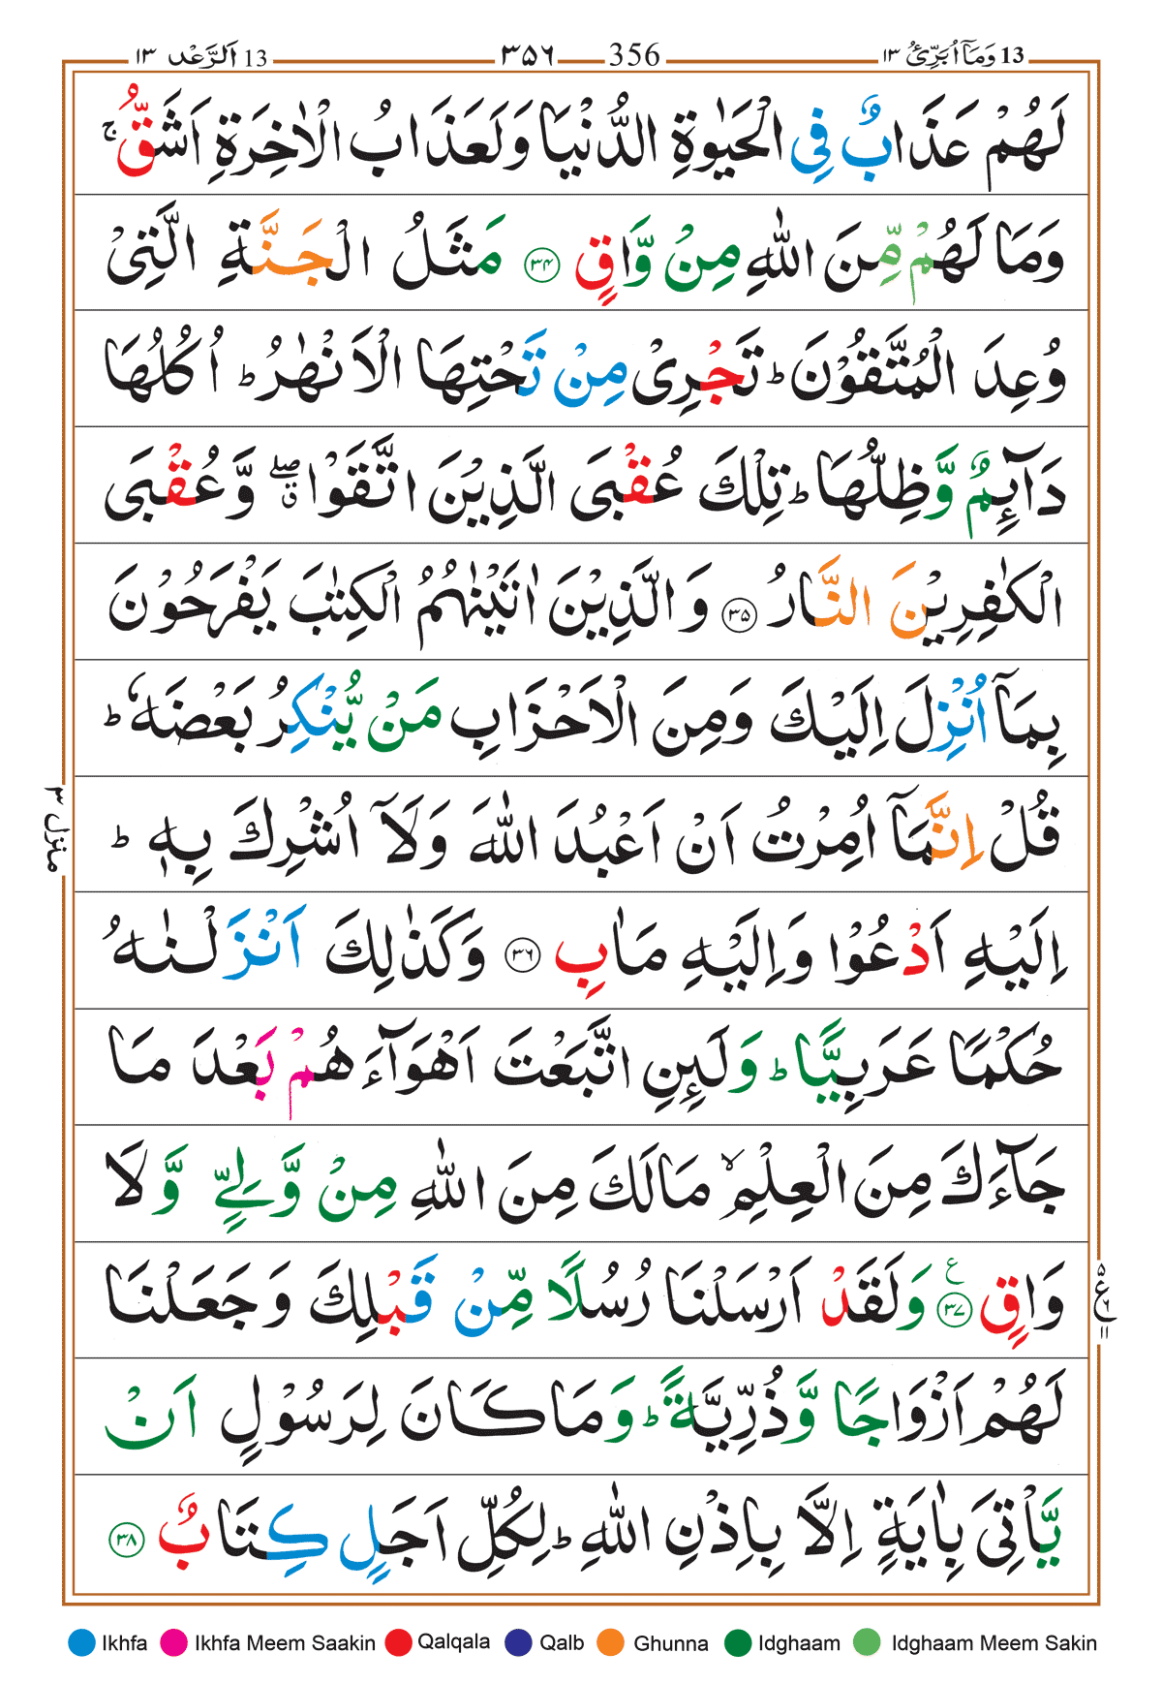 13 وَمَآ اُبَرِّئُ ١٣ 356 ٣٥٦ 13 اَلرَّعْد ١٣
لَهُمْ عَذَابٌ فِى الْحَيٰوةِ الدُّنْيَا وَلَعَذَابُ الْاٰخِرَةِ اَشَقُّ ۚ
وَمَا لَهُمْ مِّنَ اللّٰهِ مِنْ وَّاقٍ ﴿٣٤﴾ مَثَلُ الْجَنَّةِ الَّتِىْ
وُعِدَ الْمُتَّقُوْنَ ؕ تَجْرِىْ مِنْ تَحْتِهَا الْاَنْهٰرُ ؕ اُكُلُهَا
دَآئِمٌ وَّظِلُّهَا ؕ تِلْكَ عُقْبَى الَّذِيْنَ اتَّقَوْا ۖق وَّعُقْبَى
الْكٰفِرِيْنَ النَّارُ ﴿٣٥﴾ وَالَّذِيْنَ اٰتَيْنٰهُمُ الْكِتٰبَ يَفْرَحُوْنَ
بِمَآ اُنْزِلَ اِلَيْكَ وَمِنَ الْاَحْزَابِ مَنْ يُّنْكِرُ بَعْضَهٗ ؕ
قُلْ اِنَّمَآ اُمِرْتُ اَنْ اَعْبُدَ اللّٰهَ وَلَآ اُشْرِكَ بِهٖ ؕ
منزل ٣
اِلَيْهِ اَدْعُوْا وَاِلَيْهِ مَاٰبِ ﴿٣٦﴾ وَكَذٰلِكَ اَنْزَلْنٰهُ
حُكْمًا عَرَبِيًّا ؕ وَلَئِنِ اتَّبَعْتَ اَهْوَآءَهُمْ بَعْدَ مَا
جَآءَكَ مِنَ الْعِلْمِ ۙ مَا لَكَ مِنَ اللّٰهِ مِنْ وَّلِىٍّ وَّلَا
وَاقٍ ﴿٣٧﴾ ع وَلَقَدْ اَرْسَلْنَا رُسُلًا مِّنْ قَبْلِكَ وَجَعَلْنَا
لَهُمْ اَزْوَاجًا وَّذُرِّيَّةً ؕ وَمَا كَانَ لِرَسُوْلٍ اَنْ
يَّاْتِىَ بِاٰيَةٍ اِلَّا بِاِذْنِ اللّٰهِ ؕ لِكُلِّ اَجَلٍ كِتَابٌ ﴿٣٨﴾
Ikhfa Ikhfa Meem Saakin Qalqala Qalb Ghunna Idghaam Idghaam Meem Sakin